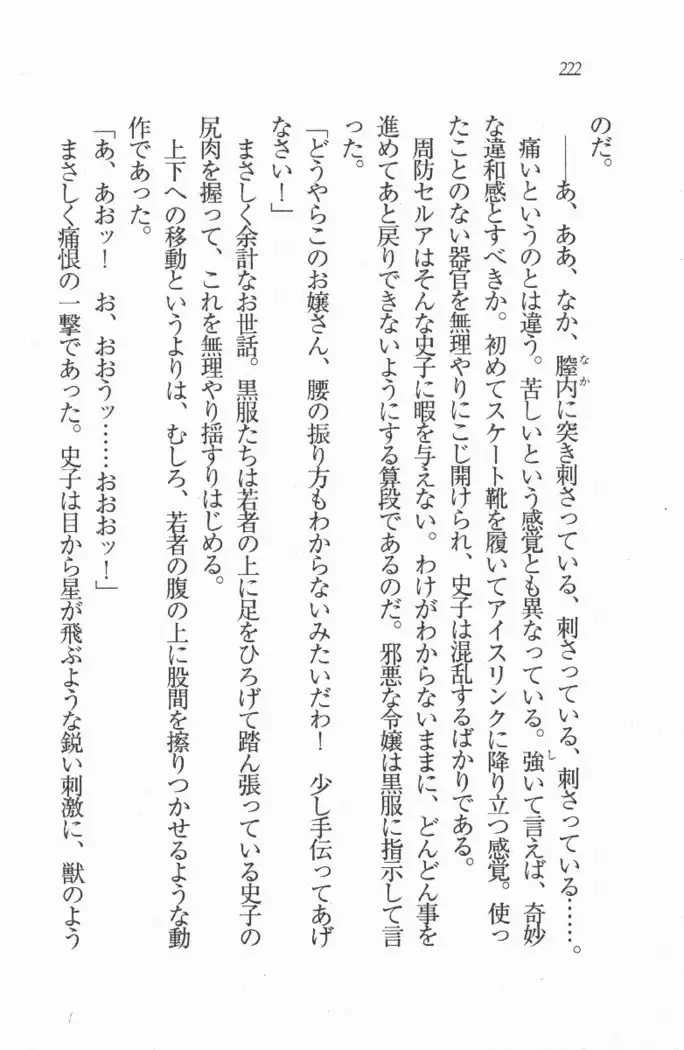 222
のだ。
――あ、ああ、なか、膣内に突き刺さっている、刺さっている、刺さっている……。
なか
痛いというのとは違う。苦しいという感覚とも異なっている。強いて言えば、奇妙
し
な違和感とすべきか。初めてスケート靴を履いてアイスリンクに降り立つ感覚。使っ
たことのない器官を無理やりにこじ開けられ、史子は混乱するばかりである。
周防セルアはそんな史子に暇を与えない。わけがわからないままに、どんどん事を
進めてあと戻りできないようにする算段であるのだ。邪悪な令嬢は黒服に指示して言
った。
「どうやらこのお嬢さん、腰の振り方もわからないみたいだわ！　少し手伝ってあげ
なさい！」
まさしく余計なお世話。黒服たちは若者の上に足をひろげて踏ん張っている史子の
尻肉を握って、これを無理やり揺すりはじめる。
上下への移動というよりは、むしろ、若者の腹の上に股間を擦りつかせるような動
作であった。
「あ、あおッ！　お、おおうッ……おおおッ！」
まさしく痛恨の一撃であった。史子は目から星が飛ぶような鋭い刺激に、獣のよう